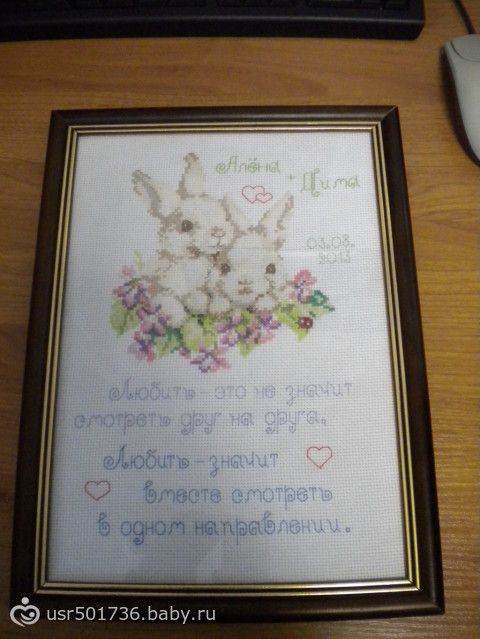 Алёна
+ Дима
03.08.
2013
Любить - это не значит
смотреть друг на друга.
Любить - значит
вместе смотреть
в одном направлении.
usr501736.baby.ru